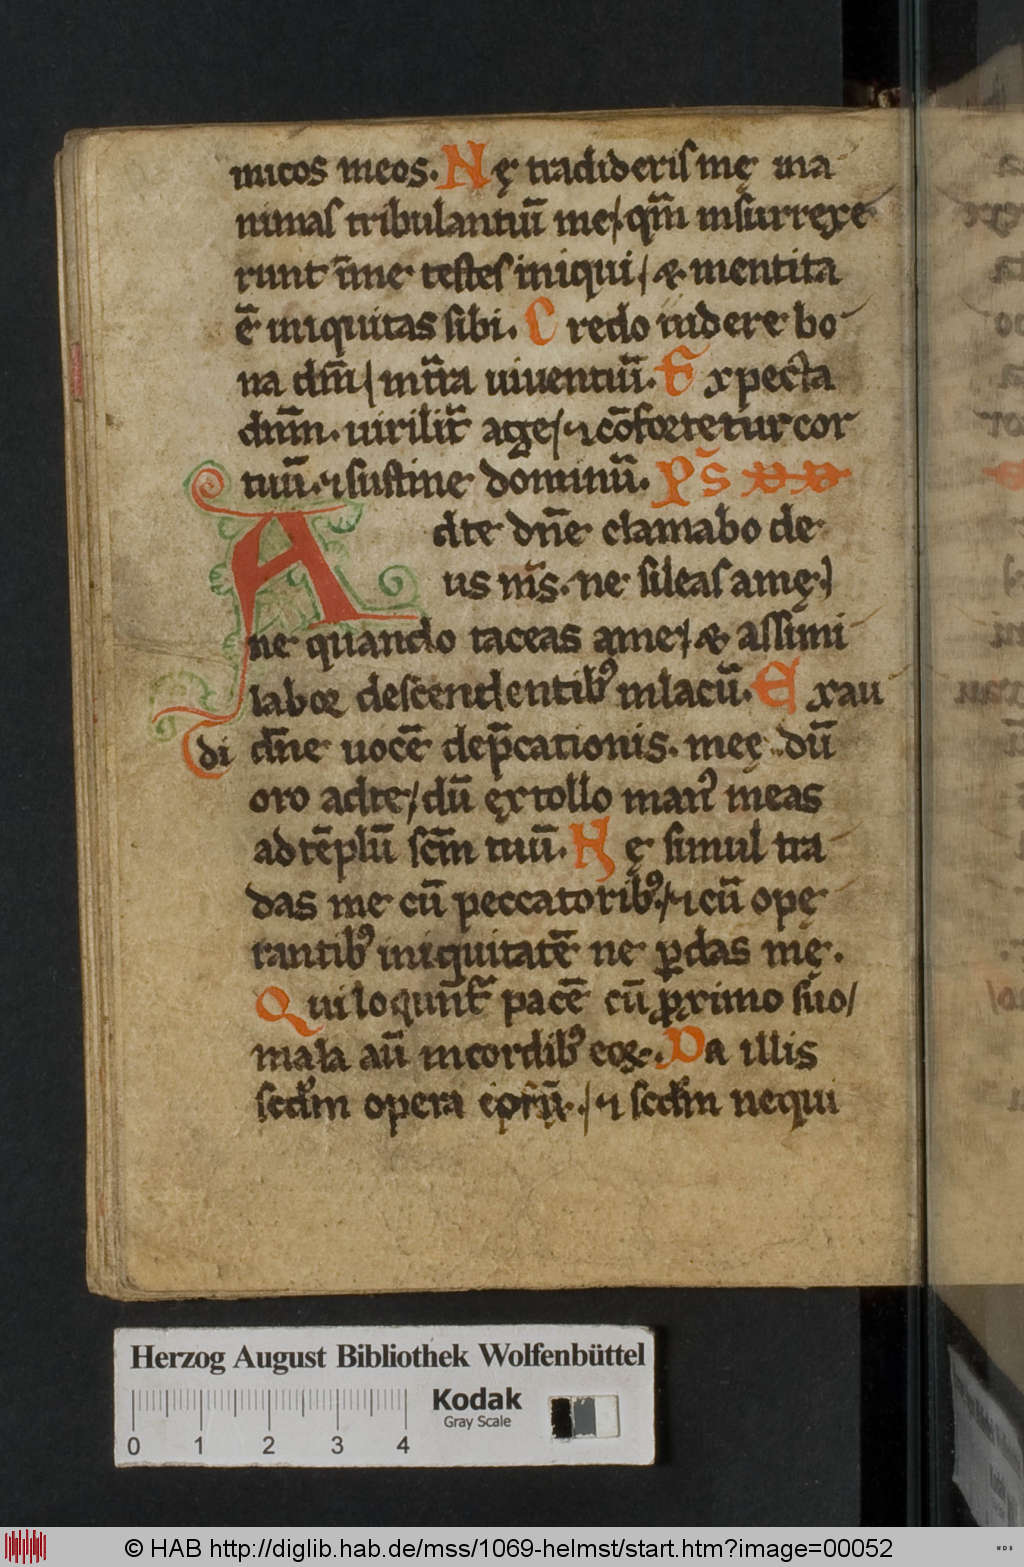 micos meos. Nę tradideris mę ina
nimas tribulantiū me/ qm̄ insurrexe
runt ī me testes iniqui/ & mentita
ē iniquitas sibi. Credo uidere bo
na dn̄i/ in tr̄a uiuentiū. Expecta
dnm̄. uirilit̄ age/ ⁊ cōfortetur cor
tuū. ⁊ sustine dominū. Ps̄
Ad te dn̄e clamabo de
us ms̄. ne sileas a mę/
ne quando taceas a me/ & assimi
labor descendentibꝰ in lacū. Exau
di dn̄e uocē dep̄cationis. meę dū
oro ad te/ dū extollo manꝰ meas
ad tēplū scm̄ tuū. Nę simul tra
das me cū peccatoribꝰ/ ⁊ cū opę
rantibꝰ iniquitatē ne ꝑdas mę.
Qui loqunt̄ pacē cū ꝓximo suo/
mala aū in cordibꝰ eoꝝ. Da illis
scdm̄ opera eorū./ ⁊ scdm̄ nequi
Herzog August Bibliothek Wolfenbüttel
Kodak
Gray Scale
0 1 2 3 4
© HAB http://diglib.hab.de/mss/1069-helmst/start.htm?image=00052